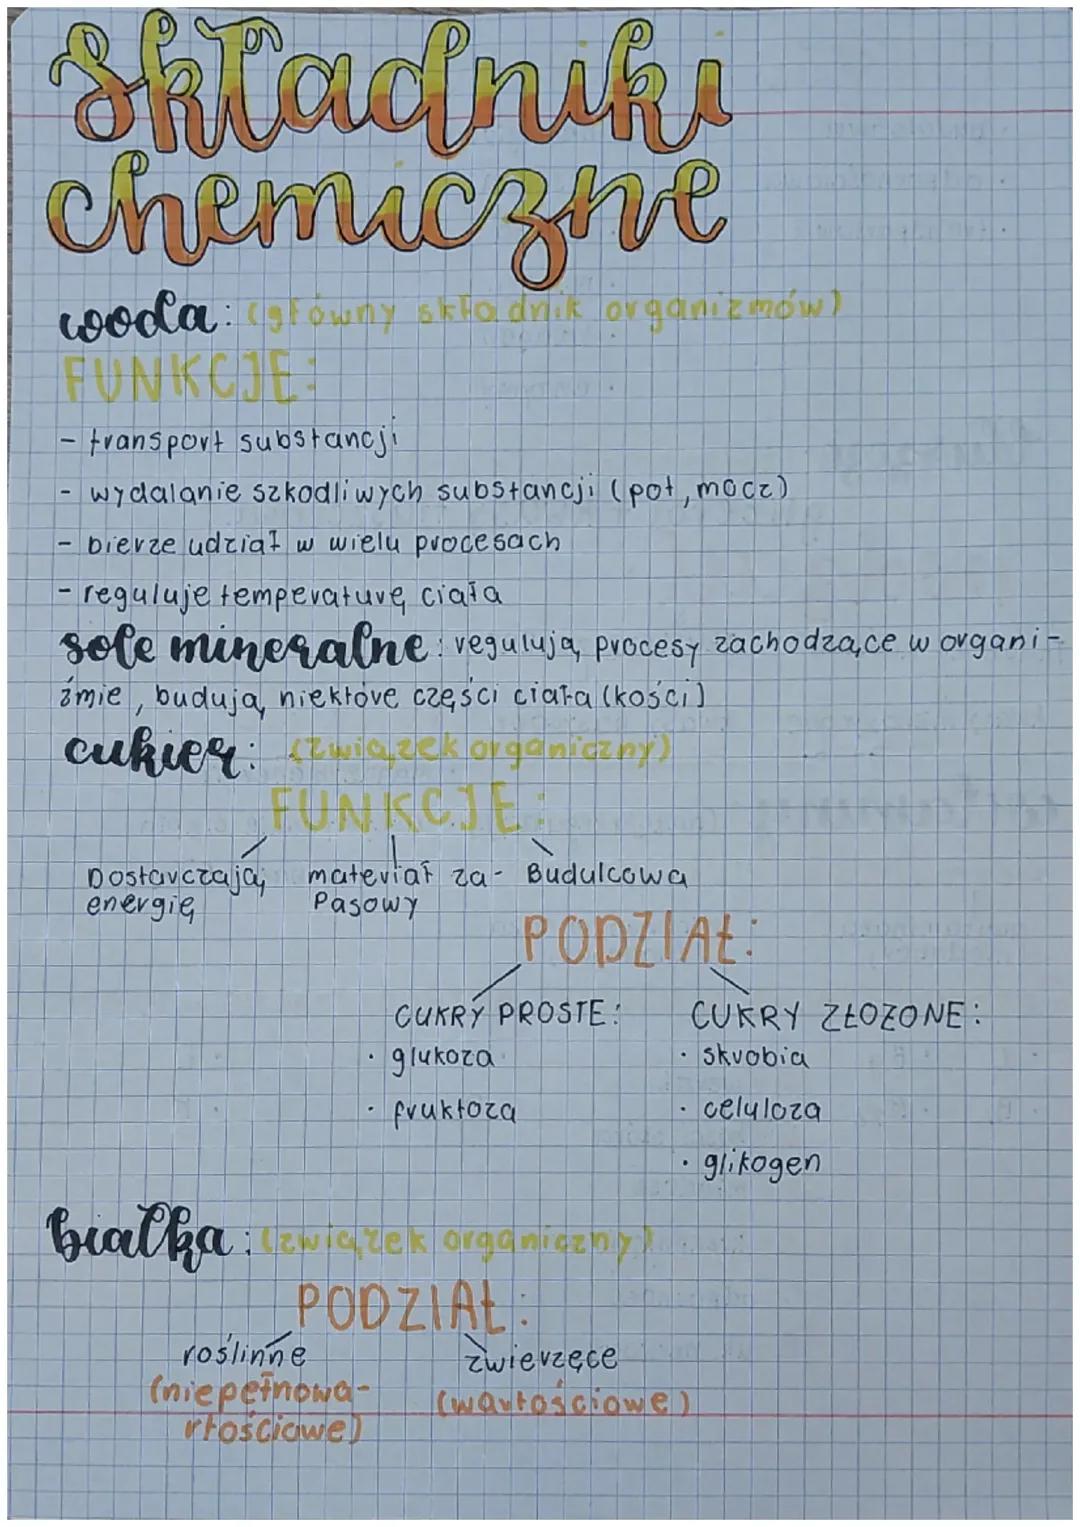 Składniki
chemiczne
woda: (główny składnik organizmów)
FUNKCJE:
- transport substancji
- wydalanie szkodliwych substancji (pot, mocz)
- bierze udział w wielu procesach
- reguluje temperaturę ciała
sole mineralne: regulują procesy zachodzące w organi-
zmie, budują niektóre części ciała (kości)
cukier: (związek organiczny)
FUNKCJE:
Dostarczają materiał za- Budulcowa
energię pasowy
PODZIAŁ:
CUKRY PROSTE: CUKRY ZŁOŻONE:
· glukoza · skrobia
· fruktoza · celuloza
· glikogen
białka: (związek organiczny)
PODZIAŁ:
roślinne zwierzęce
(niepełnowa- (wartościowe)
rtościowe)